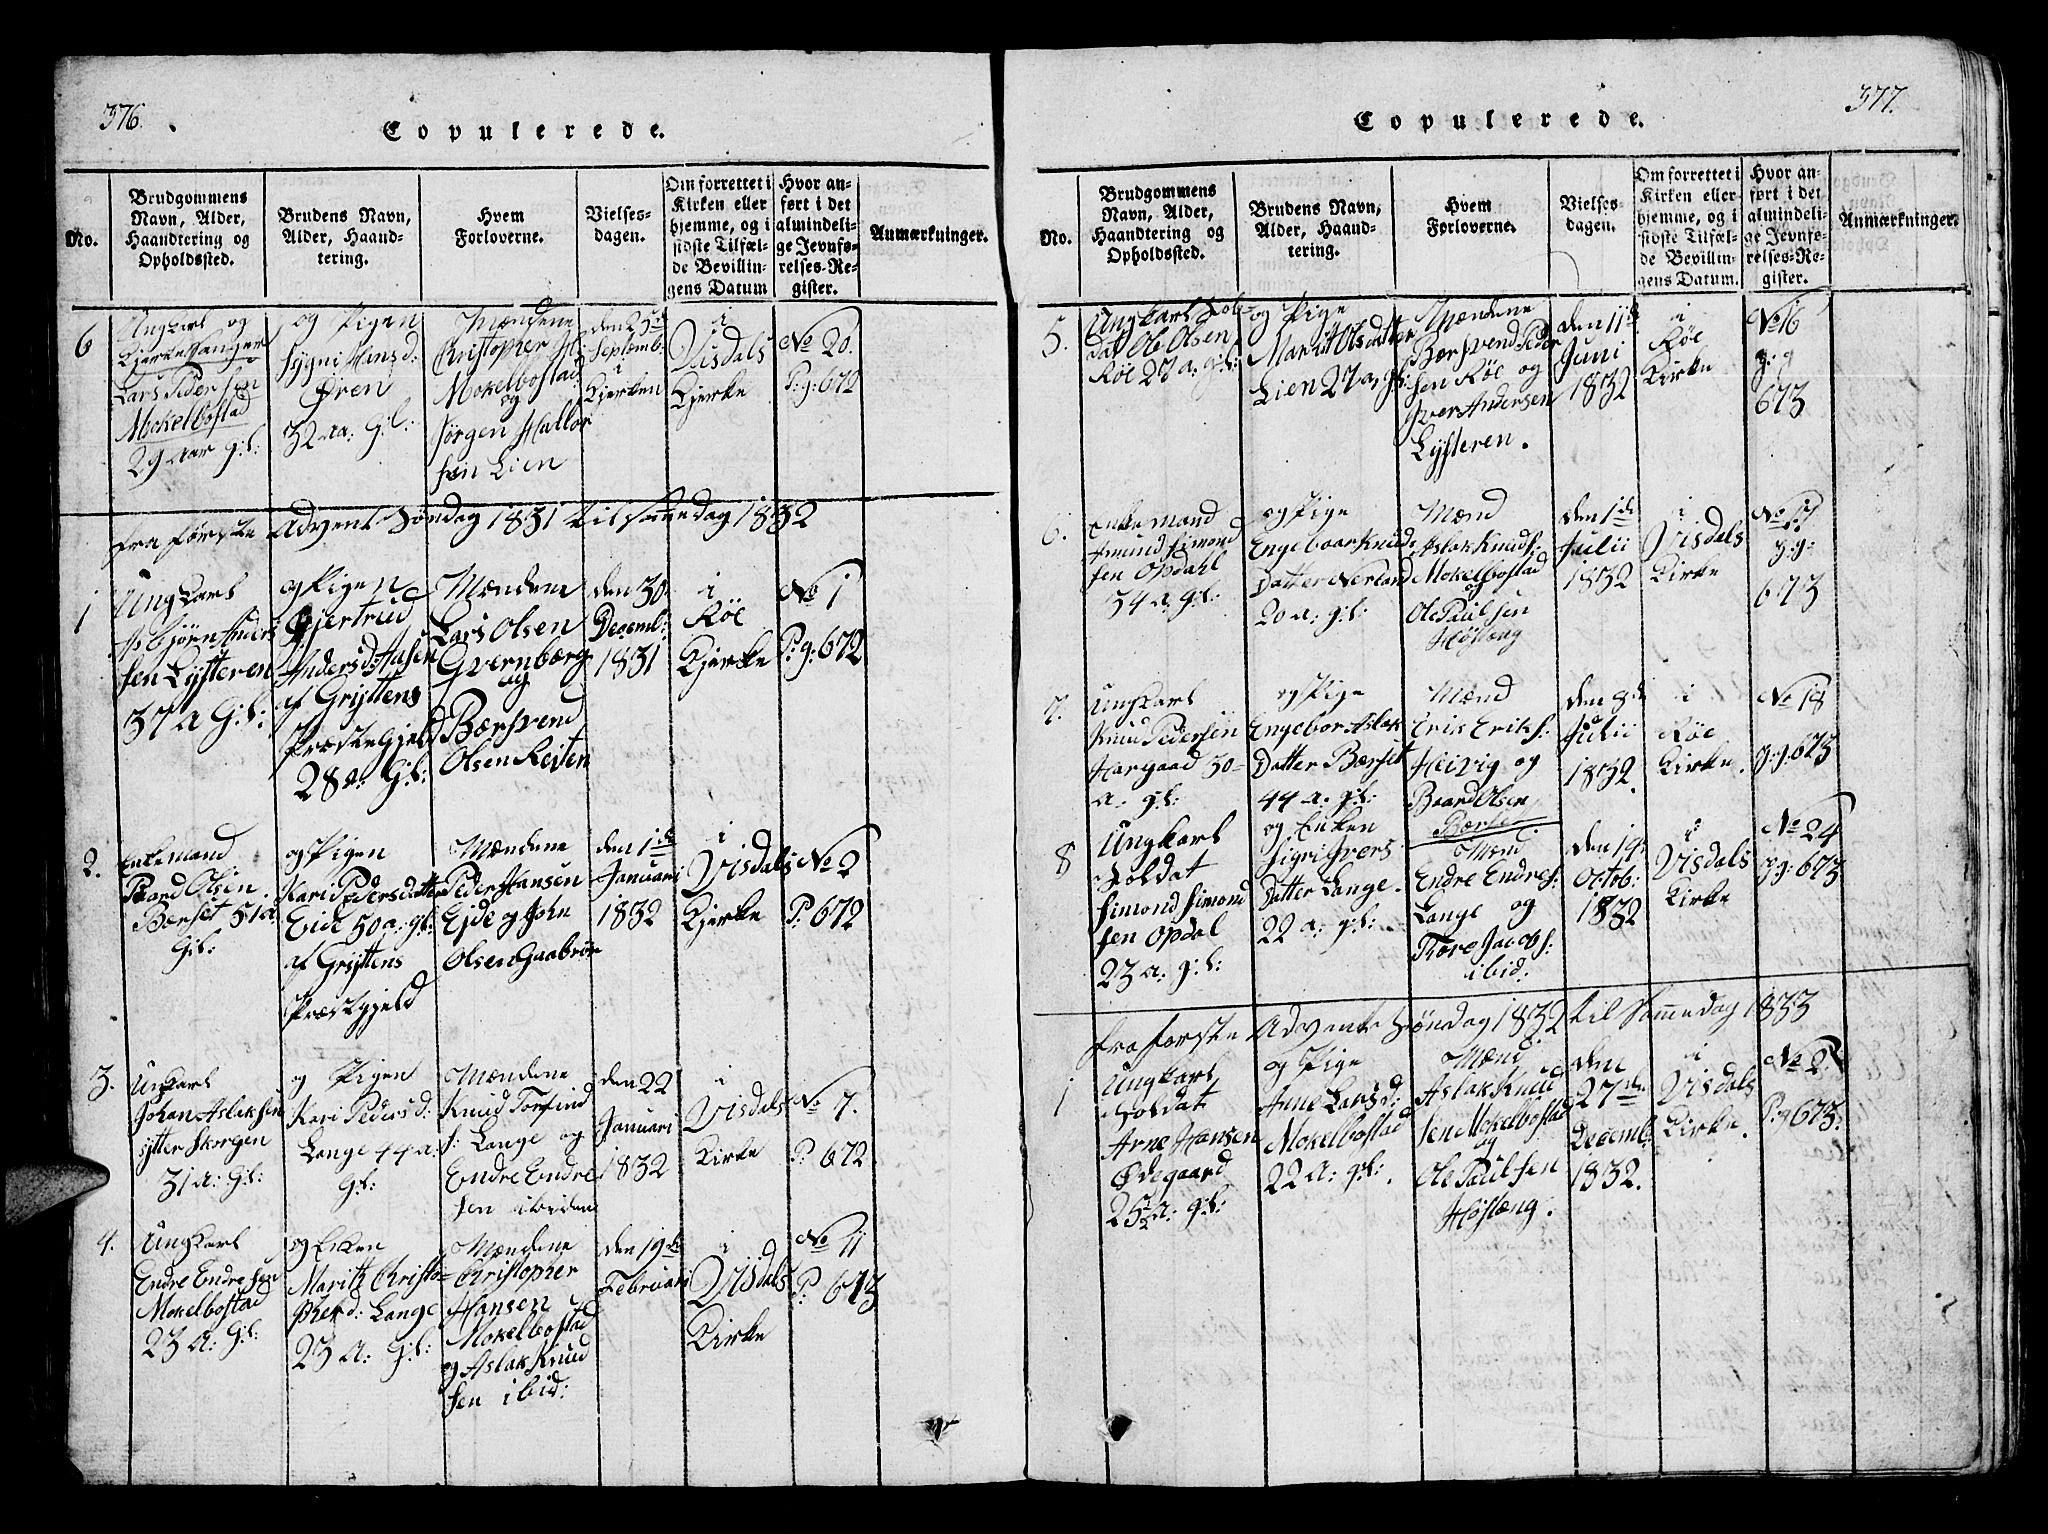 376.
Copulerede.
No.
Brudgommens
Navn, Alder,
Haandtering og
Opholdssted.
Brudens Navn,
Alder, Haand-
tering.
Hvem
Forloverne.
Vielses-
dagen.
Om forrettet i
Kirken eller
hjemme, og i
sidste Tilfæl-
de Bevillin-
gens Datum
Hvor an-
ført i det
almindeli-
ge Jevnfø-
relses-Re-
gister.
Anmærkninger.
6
Ungkarl og
Kjerkesanger
Lars Pedersen
Mokelbostad
29 aar g:l:
og Pigen
Sygni Hansd:
Øren
32 aa: g:l:
Mændene
Christopher H:
Mokelbostad
og
Jørgen Hallor
sen Lien
den 25de
Septemb:
i
Kjerken
i
Visdals
Kjerke
No 20.
P: g: 672
fra første Advent Søndag 1831 til samme dag 1832
1
Ungkarl
Esbjørn Anders
sen Lysteren
37 a g:l:
og Pigen
Gjertrud
Andersd: Aasen
af Gryttens
Præstegjeld
28 a: g:l:
Mændene
Lars Olsen
Gvernberg
og
Bærsvend
Olsen Reiten
den 30
Decemb:
1831
i
Røe
Kjerke
No 1
P: g: 672
2.
Enkemand
Baard Olsen
Bærset 51 a
g:l:
og Pigen
Kari Pedersdatter
Eide 50 a: g:l:
af Gryttens
Præstgjeld
Mændene
Peder Hansen
Ejde og John
Olsen Gaabrøe
den 1de
Januari
1832
i
Visdals
Kjerke
No 2
P: 672
3.
Unkarl
Johan Aslaksen
ytter Skorgen
31 a: g:l:
og Pigen
Kari Pedersd:
Lange 44 a:
g:l:
Mændene
Knud Torfind
s: Lange og
Endre Endre
sen ibidem
den 22
Januari
1832
i
Visdals
Kirke
No 7.
P: 672
4.
Ungkarl
Endre Endresen
Mokelbostad
23 a: g:l:
og Enken
Maritz Christo-
pherd: Lange
23 a: g:l:
Mændene
Christopher
Hansen
Mokelbostad
og Aslak Knud
sen ibid:
den 19de
Februari
i
Visdals
Kirke
No 11
P: 673
377.
Copulerede.
No.
Brudgommens
Navn, Alder,
Haandtering og
Opholdssted.
Brudens Navn,
Alder, Haand-
tering.
Hvem
Forloverne.
Vielses-
dagen.
Om forrettet i
Kirken eller
hjemme, og i
sidste Tilfæl-
de Bevillin-
gens Datum.
Hvor an-
ført i det
almindeli-
ge Jevnfø-
relses-Re-
gister.
Anmærkninger.
5.
Ungkarl Sol-
dat Ole Olsen
Røe 27 a: g:l:
og Pige
Marit Olsdatter
Lien 27 a: g:l:
Mændene
Bærsvend Peder
sen Røe og
Iver Andersen
Lysteren.
den 11de
Juni
1832
i
Røe
Kirke
No 16
p: g
673
6.
Enkemand
Amund Simond
sen Opdahl
54 a: g:l:
og Pige
Engeboar Knuds
Datter Nerland
20 a: g:l:
Mænd
Aslak Knuds:
Mokelbostad
og
Ole Paulsen
Høstæng
den 1de
Julii
1832
i
Visdals
Kirke
No 17
p: g:
673
7.
Ungkarl
Knud Pedersen
Hargaad 30
a: g:l:
og Pige
Engebor Aslak
Datter Bærset
44 a: g:l:
Mænd
Erik Eriks:
Heivig og
Baard Olsen
Bærset
den 8de
Julii
1832.
i
Røe
Kirke.
No 18
p: g: 673
8
Ungkarl
Soldat
Simond Simond
sen Opdal
23 a: g:l:
og Enken
Sigri Ivers
Datter Lange.
22 a: g:l:
Mænd
Endre Endres:
Lange og
Tore Jacobs:
ibid.
den 19
Octob:
1832
i
Visdals
Kirke
No 24
p: g: 673
fra forste Advents Søndag 1832 til Sammedag 1833
1
Ungkarl
Soldat
Arne Hansen
Ødegaard
25½ a: g:l:
og Pige
Ane Larsd:
Mokelbostad
22 a: g:l:.
Mænd
Aslak Knud
sen Mokelbostad
og
Ole Paulsen
Høstæng.
den
27de
Decemb:
1832.
i
Visdals
Kirke.
No 2.
P: g 673.